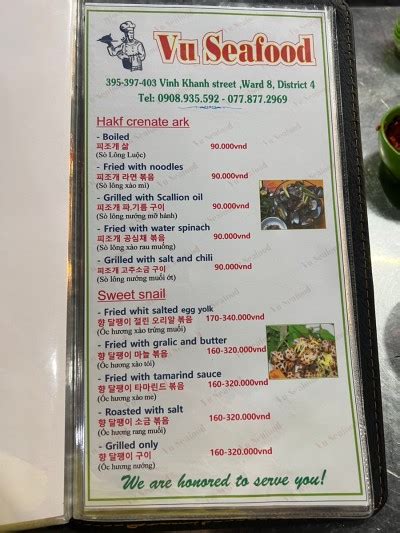 Vu Seafood
395-397-403 Vinh Khanh street ,Ward 8, District 4
Tel: 0908.935.592 - 077.877.2969
Hakf crenate ark
- Boiled
피조개 삶 90.000vnd
(Sò Lông Luộc)
- Fried with noodles
피조개 라면 볶음 90.000vnd
(Sò lông xào mì)
- Grilled with Scallion oil
피조개 파.기름 구이 90.000vnd
(Sò lông nướng mỡ hành)
- Fried with water spinach
피조개 공심채 볶음 90.000vnd
(Sò lông xào rau muống)
- Grilled with salt and chili
피조개 고추소금 구이 90.000vnd
(Sò lông nướng muối ớt)
Sweet snail
- Fried whit salted egg yolk
향 달팽이 절린 오리알 볶음 170-340.000vnd
(Ốc hương xào trứng muối)
- Fried with gralic and butter
향 달팽이 마늘 볶음 160-320.000vnd
(Ốc hương xào tỏi)
- Fried with tamarind sauce
향 달팽이 타마린드 볶음 160-320.000vnd
(Ốc hương xào me)
- Roasted with salt
향 달팽이 소금 볶음 160-320.000vnd
(Ốc hương rang muối)
- Grilled only
향 달팽이 구이 160-320.000vnd
(Ốc hương nướng)
We are honored to serve you!